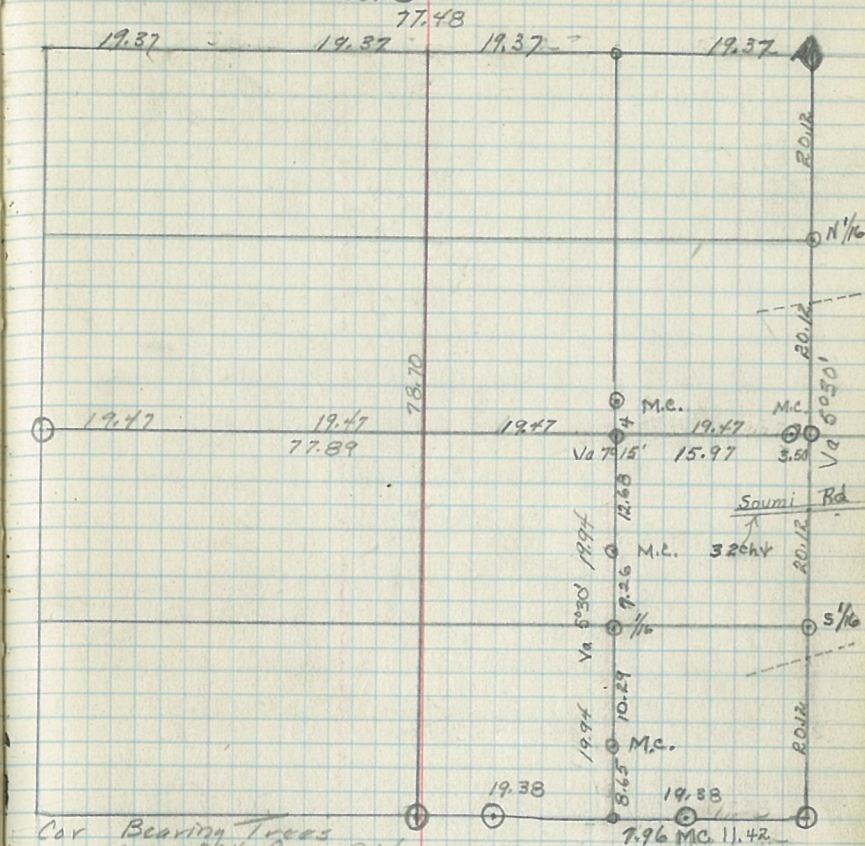 77.48
19.37 19.37 19.37 19.37
20.12
N 1/16
20.12
78.70
Va 5°30'
M.C. M.C.
4
19.47 19.47 19.47 19.47
77.89 Va 7°15' 15.97 3.50
12.68
Soumi Rd
19.94 M.C. 32chs
20.12
7.26
Va 5°30' 1/16 S 1/16
10.29
19.94 M.C.
20.12
8.65
19.38 19.38
7.96 MC 11.42
Cor Bearing Trees